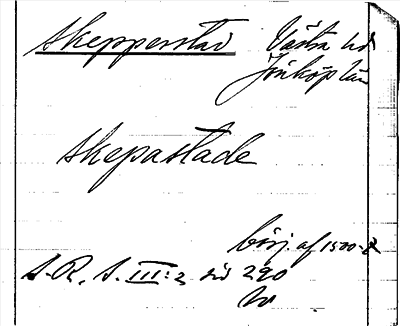 Skepperstad Västra hd
Jönköp. län
skepastade
börj. af 1500-t
S.R.S. III:2 sid 290